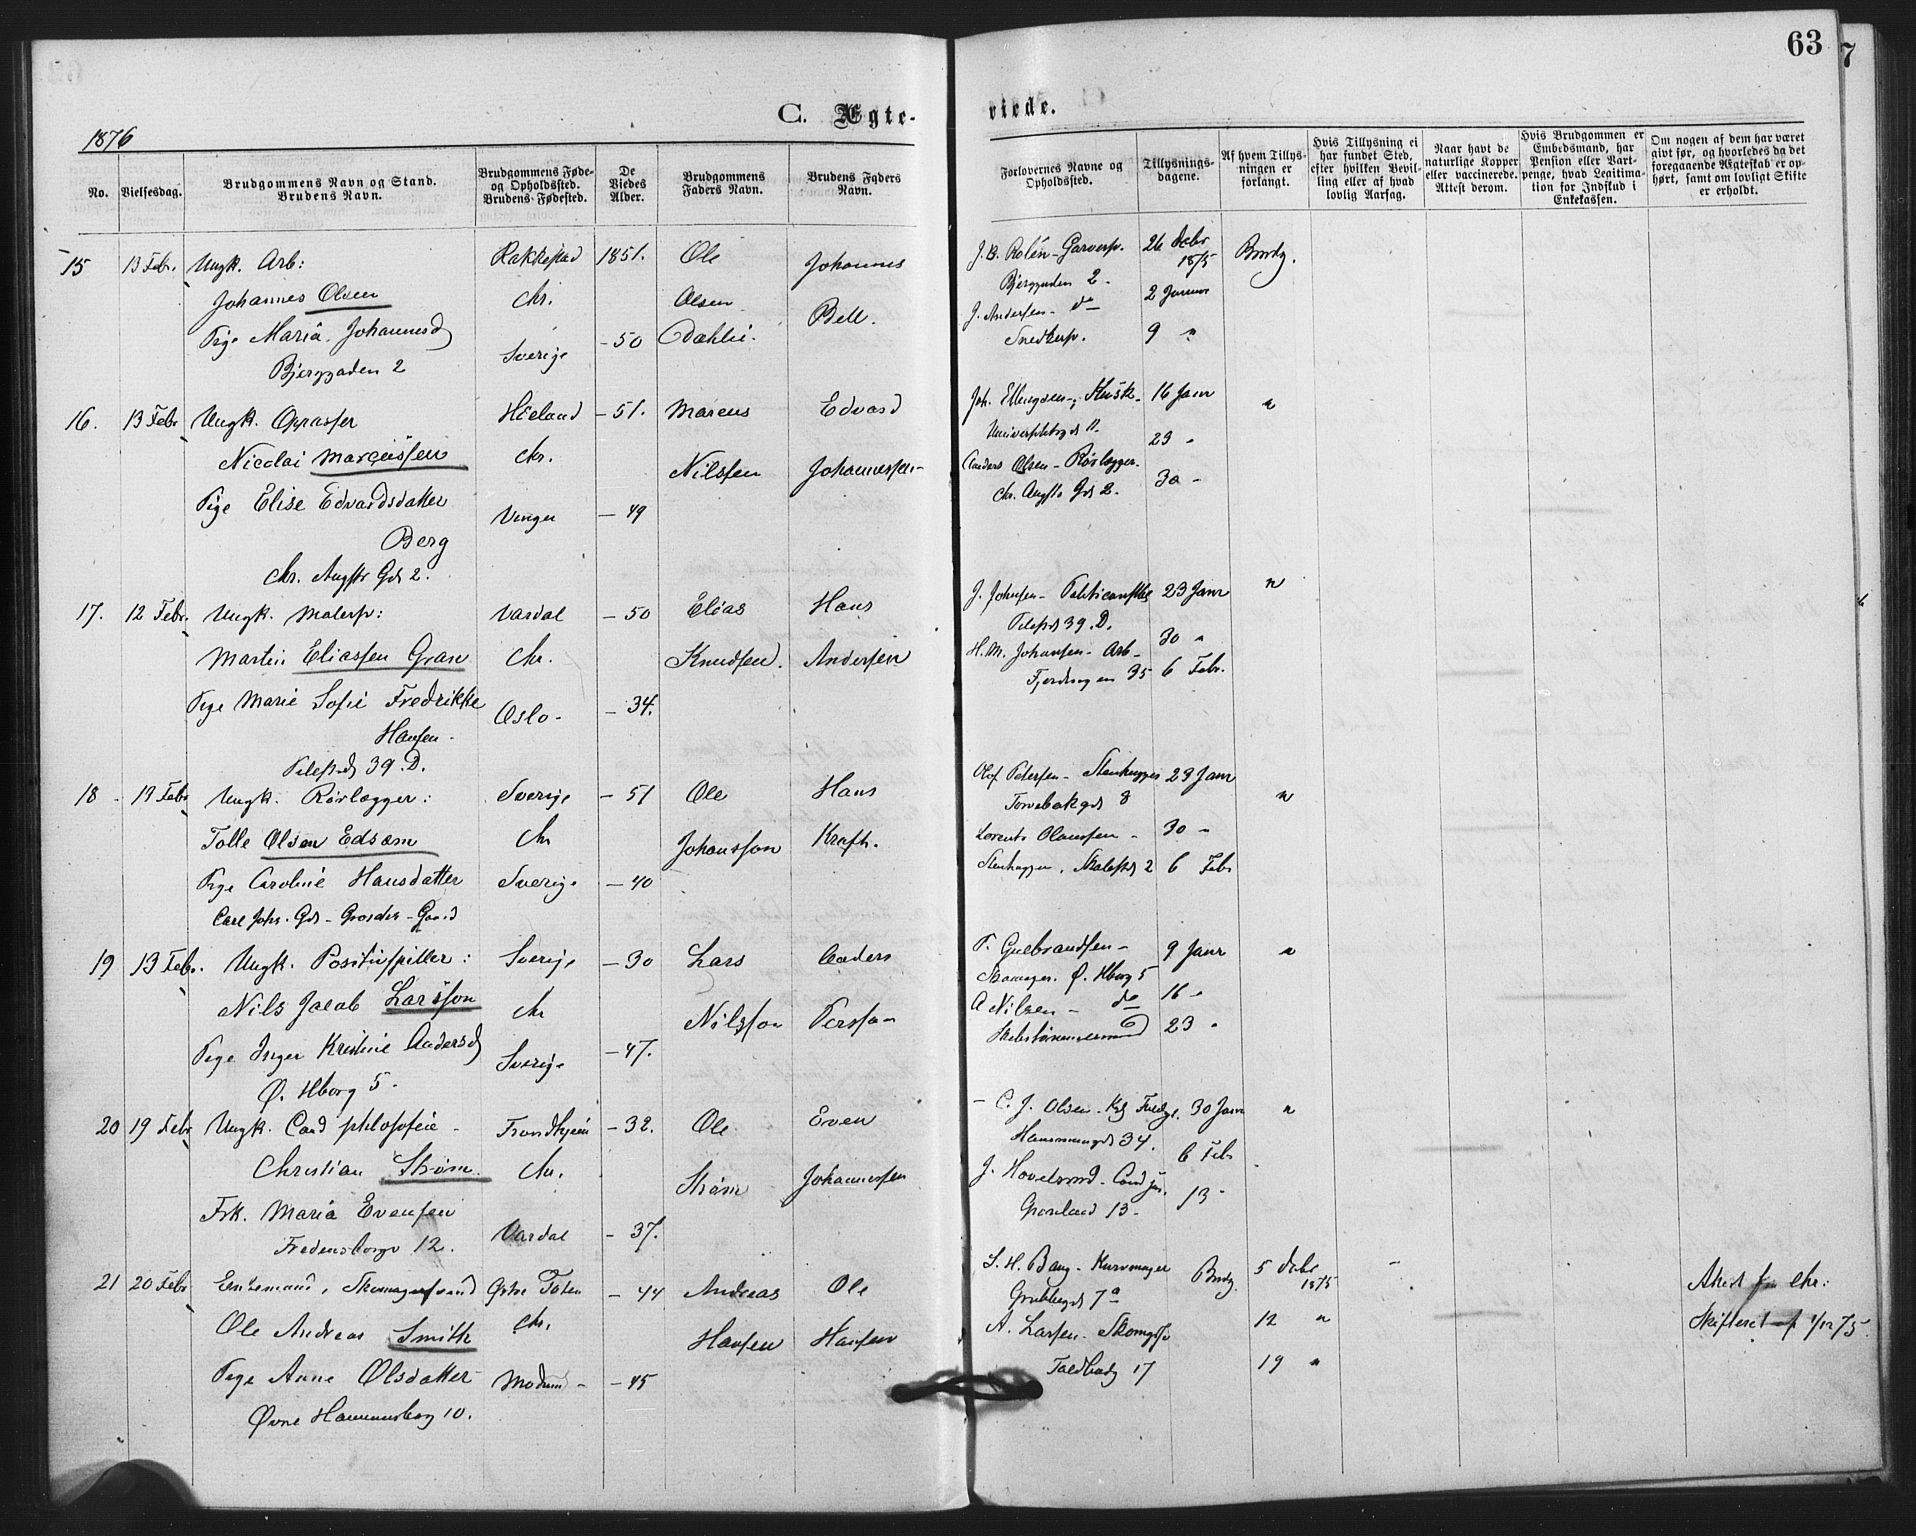 63
7
C. Ægte-
viede.
1876
No.
Vielsesdag.
Brudgommens Navn og Stand.
Brudens Navn.
Brudgommens Føde-
og Opholdssted.
Brudens Fødested.
De
Viedes
Alder.
Brudgommens
Faders Navn.
Brudens Faders
Navn.
Forlovernes Navne og
Opholdssted.
Tillysnings-
dagene.
Af hvem Tillys-
ningen er
forlangt.
Hvis Tillysning ei
har fundet Sted,
efter hvilken Bevil-
ling eller af hvad
lovlig Aarsag.
Naar havt de
naturlige Kopper
eller vaccinerede.
Attest derom.
Hvis Brudgommen er
Embedsmand, har
Pension eller Vart-
penge, hvad Legitima-
tion for Indskud i
Enkekassen.
Om nogen af dem har været
givt før, og hvorledes da det
foregaaende Ægteskab er op-
hørt, samt om lovligt Skifte
er erholdt.
15 13 Febr. Ungk. Arb: Rakkestad 1851. Ole Johannes
Johannes Olsen Chr. Olsen Bell.
Pige Maria Johannesd Sverige - 50 Dahlie.
Bjerggaden 2
J. B. Rolén - Garversv. 26 Debr 1875 Brudg.
Bjerggaden 2. 2 Januar
J. Andersen - do
Snedkersv. 9 "
16. 13 Febr Ungk. Opasser Hieland - 51. Marcus Edvard
Nicolai Marcussen Chr. Nilssen Johannessen
Pige Elise Edvardsdatter Vinger - 49
Berg
Chr. Augsts Gd 2.
Joh. Ellingsen, Kusk - 16 Janr "
Universitetsgd 11. 23 "
Anders Olsen - Rørlægger.
Chr. Augsts Gd 2. 30 "
17. 12 Febr. Ungk. Malersv: Vardal - 50 Elias Hans
Martin Eliassen Gran Chr. Knudsen. Andersen
Pige Marie Sofie Fredrikke Oslo - - 34.
Hansen -
Pilestd 39. D.
J. Johnsen - 23 Janr "
Pilestd 39. D. 30 "
H. M. Johansen - Arb -
35 6 Febr.
18 - 13 Febr Ungk. Rørlægger: Sverige - 51 Ole Hans
Tolle Olsen Edsam Chr Johansson Kraft.
Pige Caroline Hansdatter Sverige - 40
Carl Johs. Gd - - Gaard
Olof Petersen - Stenhugger 23 Janr "
Torvebakgd 8
Lorents Olaussen - 30 "
Stenhugger, 2 6 Febr
19 13 Febr. Ungk. Positivspiller: Sverige - 30 Lars Anders
Nils Jacob Larsson Chr Nilsson Persson
Pige Inger Kristine Andersd Sverige - 47.
Ø. Hborg 5.
P. Gulbrandsen - 9 Janr "
Skomager. Ø. Hborg 5
A Nilsen - do 16 "
23 "
20 19 Febr Ungk. Cand philosofie - Trondhjem - 32. Ole Even
Christian Strøm Chr. Strøm Johannessen
Frk. Maria Evensen Vardal - 37.
Fredensborgv 12.
C. J. Olsen - 30 Janr "
Hausmansgd 34. 6 Febr
J. Hovelsrud - Cand jur.
Grønland 13 - 13 "
21 20 Febr Enkemand, Skomagersvend Østre Toten - 44 Andreas Ole
Ole Andreas Smith Chr. Hansen Hansen
Pige Anne Olsdatter Modum - - 45
Øvre Hammersborg 10.
S. H. Bang - Kurvmager Brdg. 5 Debr 1875
Grubbegd 7a
A. Larsen - Skomgsv 12 "
17 19 "
Attest fra Chr:
Skifteret af 1/12 75.